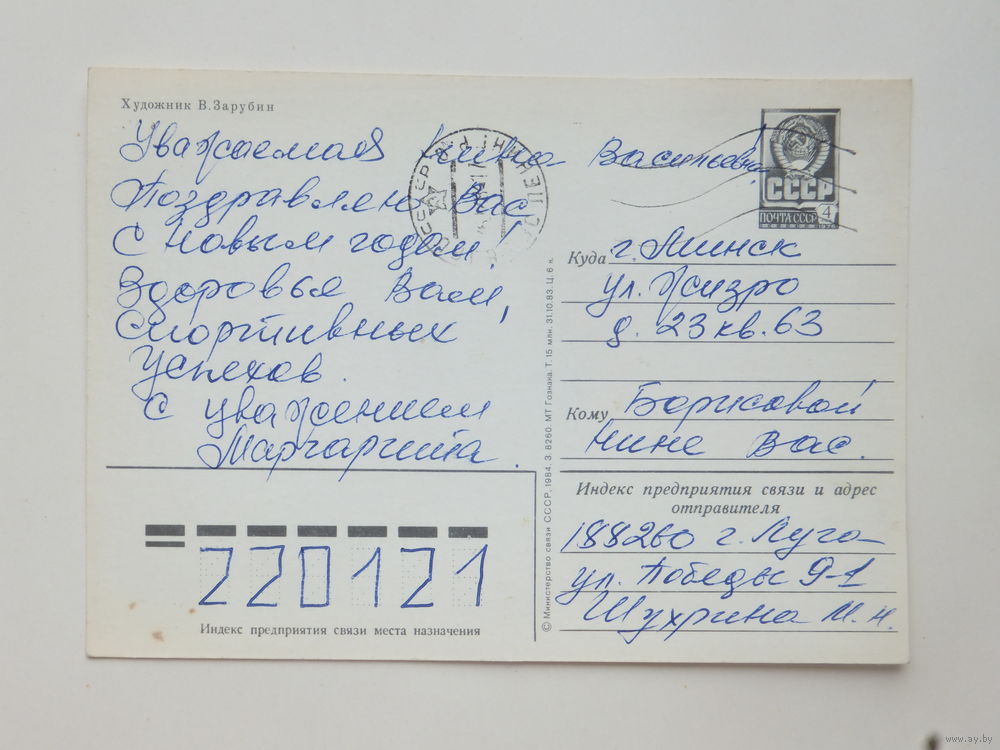 Художник В.Зарубин
Уважаемая Нина Васильевна
Поздравляю Вас
с Новым годом!
Здоровья Вам,
Спортивных
Успехов.
С уважением
Маргарита.
СССР
ПОЧТА СССР 4
Куда г. Минск
ул. Жизро
д. 23 кв. 63
Кому Борисовой
Нине Вас.
Индекс предприятия связи и адрес
отправителя
188260 г. Луга
ул. Победы 9-1
Шухрина М. Н.
220121
Индекс предприятия связи места назначения
© Министерство связи СССР, 1984. З. 8260. МТ Гознака. Т. 15 млн. 31.10.83. Ц. 6 к.
www.ay.by